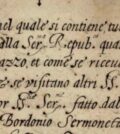 nel quale si contiene tu
alla Ser.ma Repub. qua
azzo, et come se riceu
se uisitano altri SS.
or SS.mi Ser.mo fatto dal
Bordonio Sermoneta